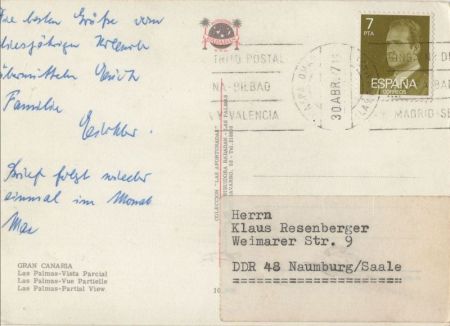 Die besten Grüße vom
diesjährigen Urlaub
übermitteln Euch
Familie
Brief folgt wieder
einmal im Monat
Mai
GRAN CANARIA
Las Palmas-Vista Parcial
Las Palmas-Vue Partielle
Las Palmas-Partial View
COLECCION "LAS AFORTUNADAS"
7
PTA
ESPAÑA
CORREOS
POSTAL
NA-BILBAO
VALENCIA
30 ABR. 7
MADRID-SE
Herrn
Klaus Resenberger
Weimarer Str. 9
DDR 48 Naumburg/Saale